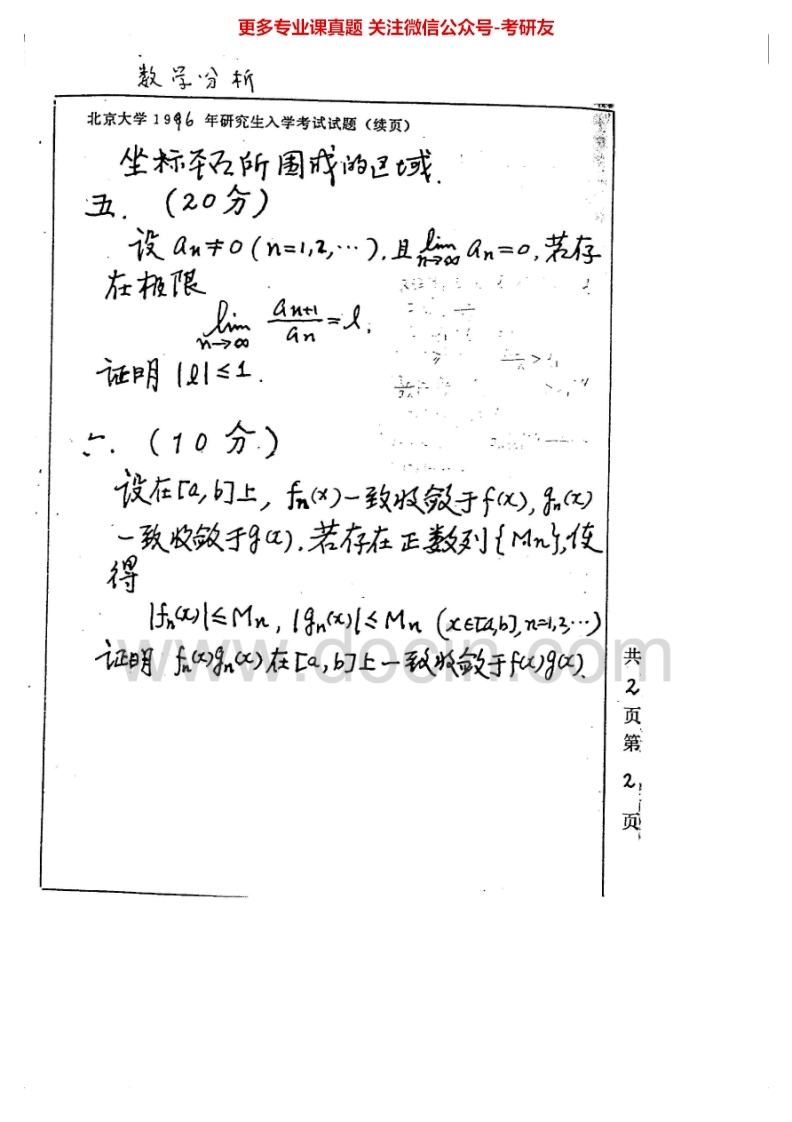 更多专业课真题 关注微信公众号-考研友
数学分析
北京大学 1996 年研究生入学考试试题（续页）
坐标平面所围成的区域.
五. (20分)
设 an≠0 (n=1,2,…), 且 lim n→∞ an=0, 若存
在极限
lim n→∞ an+1/an = l,
证明 |l|≤1.
六. (10分)
设在[a,b]上, fn(x)一致收敛于f(x), gn(x)
一致收敛于g(x). 若存在正数列{Mn}, 使
得
|fn(x)|≤Mn, |gn(x)|≤Mn (x∈[a,b], n=1,2,…)
证明 fn(x)gn(x)在[a,b]上一致收敛于f(x)g(x).
www.docin.com
共
2
页
第
2
页